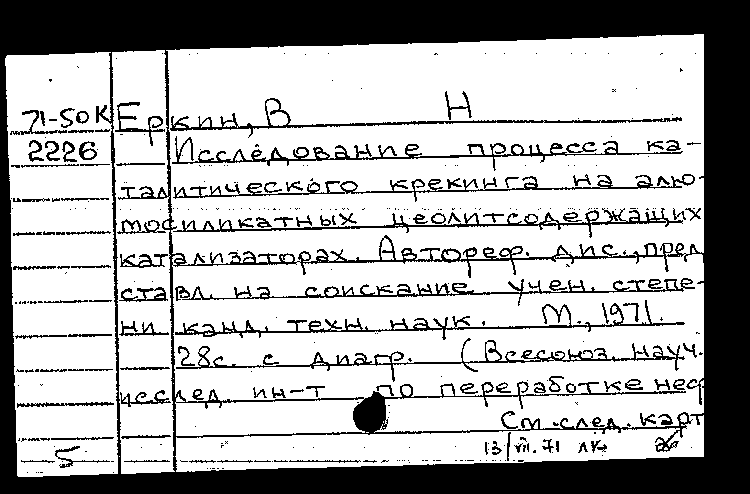 71-50к Еркин, В Н
2226 Исследование процесса ка-
талитического крекинга на алю-
мосиликатных цеолитсодержащих
катализаторах. Автореф. дис., пред
ставл. на соискание учен. степе-
ни канд. техн. наук. М., 1971.
28с. с диагр. (Всесоюз. науч.
исслед. ин-т по переработке неф
См. след. карт
5 13/VII.71